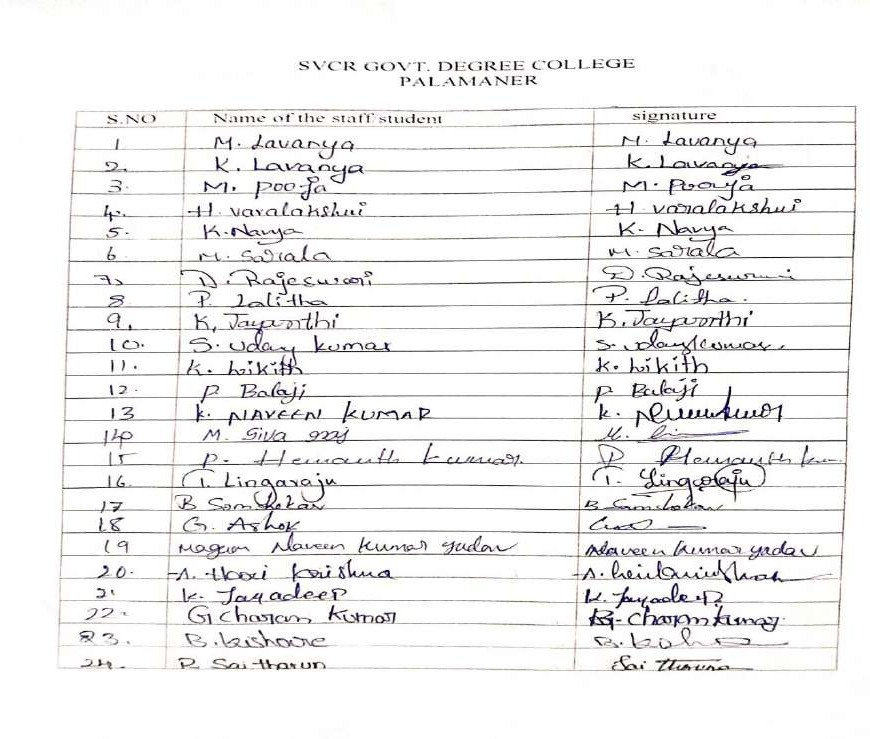 SVCR GOVT. DEGREE COLLEGE
PALAMANER
S.NO Name of the staff student signature
1 M. Lavanya M. Lavanya
2. K. Lavanya K. Lavanya
3. M. Pooja M. Pooja
4. H. varalakshmi H. varalakshmi
5. K. Navya K. Navya
6 M. Sarala M. Sarala
7. D. Rajeswari D. Rajeswari
8 P. Lalitha P. Lalitha.
9. K. Jayanthi K. Jayanthi
10. S. uday kumar S. udaykumar.
11. K. Likith K. Likith
12. P Balaji P Balaji
13 K. NAVEEN KUMAR K.
14 M. Siva M.
15 P. Hemanth kumar. P Hemanth
16. T. Lingaraju T. Lingaraju
17 B B
18 G. Ashok
19 Naveen kumar yadav Naveen kumar yadav
20. A. Hari krishna A.
21 K. Jayadeep K. Jayadeep
22. G charan kumar G. charan kumar
23. B. kishore B.
24. P Sai tharun Sai Tharun